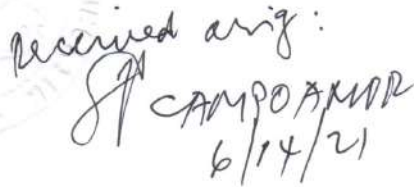 received orig:
CAMPOAMOR
6/14/21